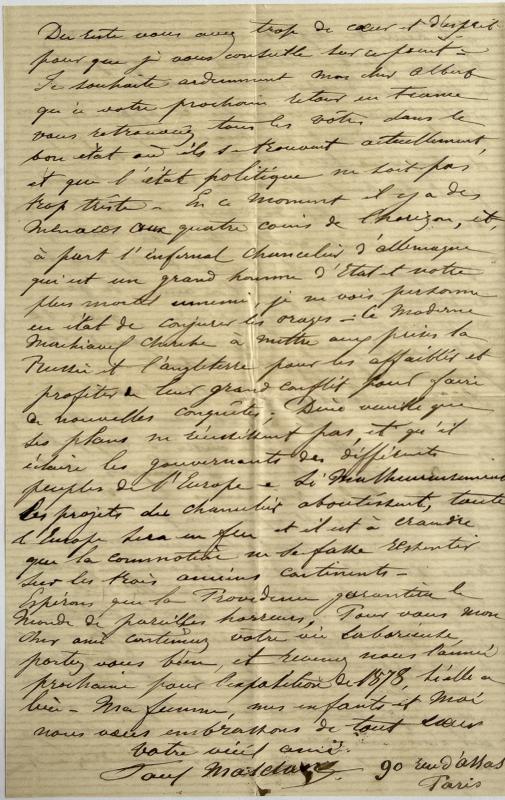 Du reste vous avez trop de cœur et d'esprit
pour que je vous conseille sur ce point –
Je souhaite ardemment mon cher
qu'à votre prochain retour en France
vous retrouviez tous les vôtres dans le
bon état où ils se trouvent actuellement,
et que l'état politique ne soit pas
trop triste – En ce moment il y a des
menaces aux quatre coins de l'horizon, et,
à part l'infernal chancelier d'allemagne
qui est un grand homme d'Etat et notre
plus mortel ennemi, je ne vois personne
en état de conjurer les orages – Le Moderne
Machiavel cherche à mettre aux prises la
Russie et l'angleterre pour les affaiblir et
profiter de leur grand conflit pour faire
de nouvelles conquêtes. Dieu veuille que
ses plans ne réussissent pas et qu'il
éclaire les gouvernants des différents
peuples de l'Europe – Si Malheureusement
les projets du chancelier aboutissent, toute
l'Europe sera en feu et il est à craindre
que la commotion ne se fasse ressentir
sur les trois anciens continents –
Espérons que la Providence garantira le
Monde de pareilles horreurs. Pour vous mon
cher ami continuez votre vie laborieuse,
portez vous bien, et revenez nous l'année
prochaine pour l'exposition de 1878, si elle a
lieu – Ma femme, mes enfants et Moi
nous vous embrassons de tout cœur
votre vieil ami.
Paul 90 rue d'assas
Paris